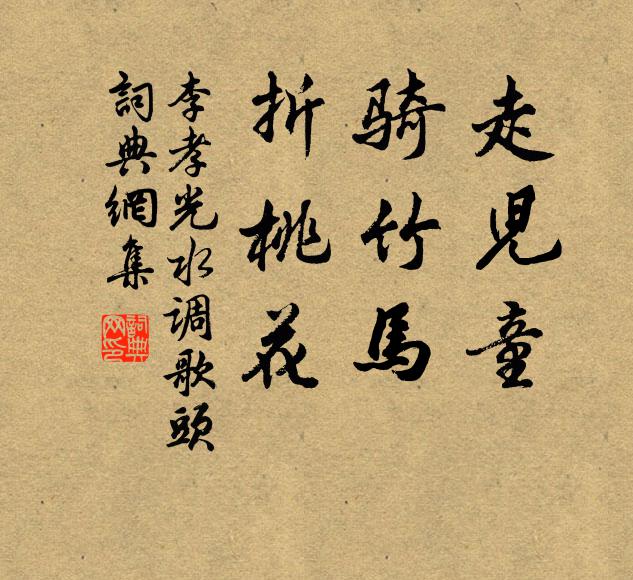 走兒童
骑竹馬
折桃花
李孝光水调歌頭
詞典網集
詞典网印